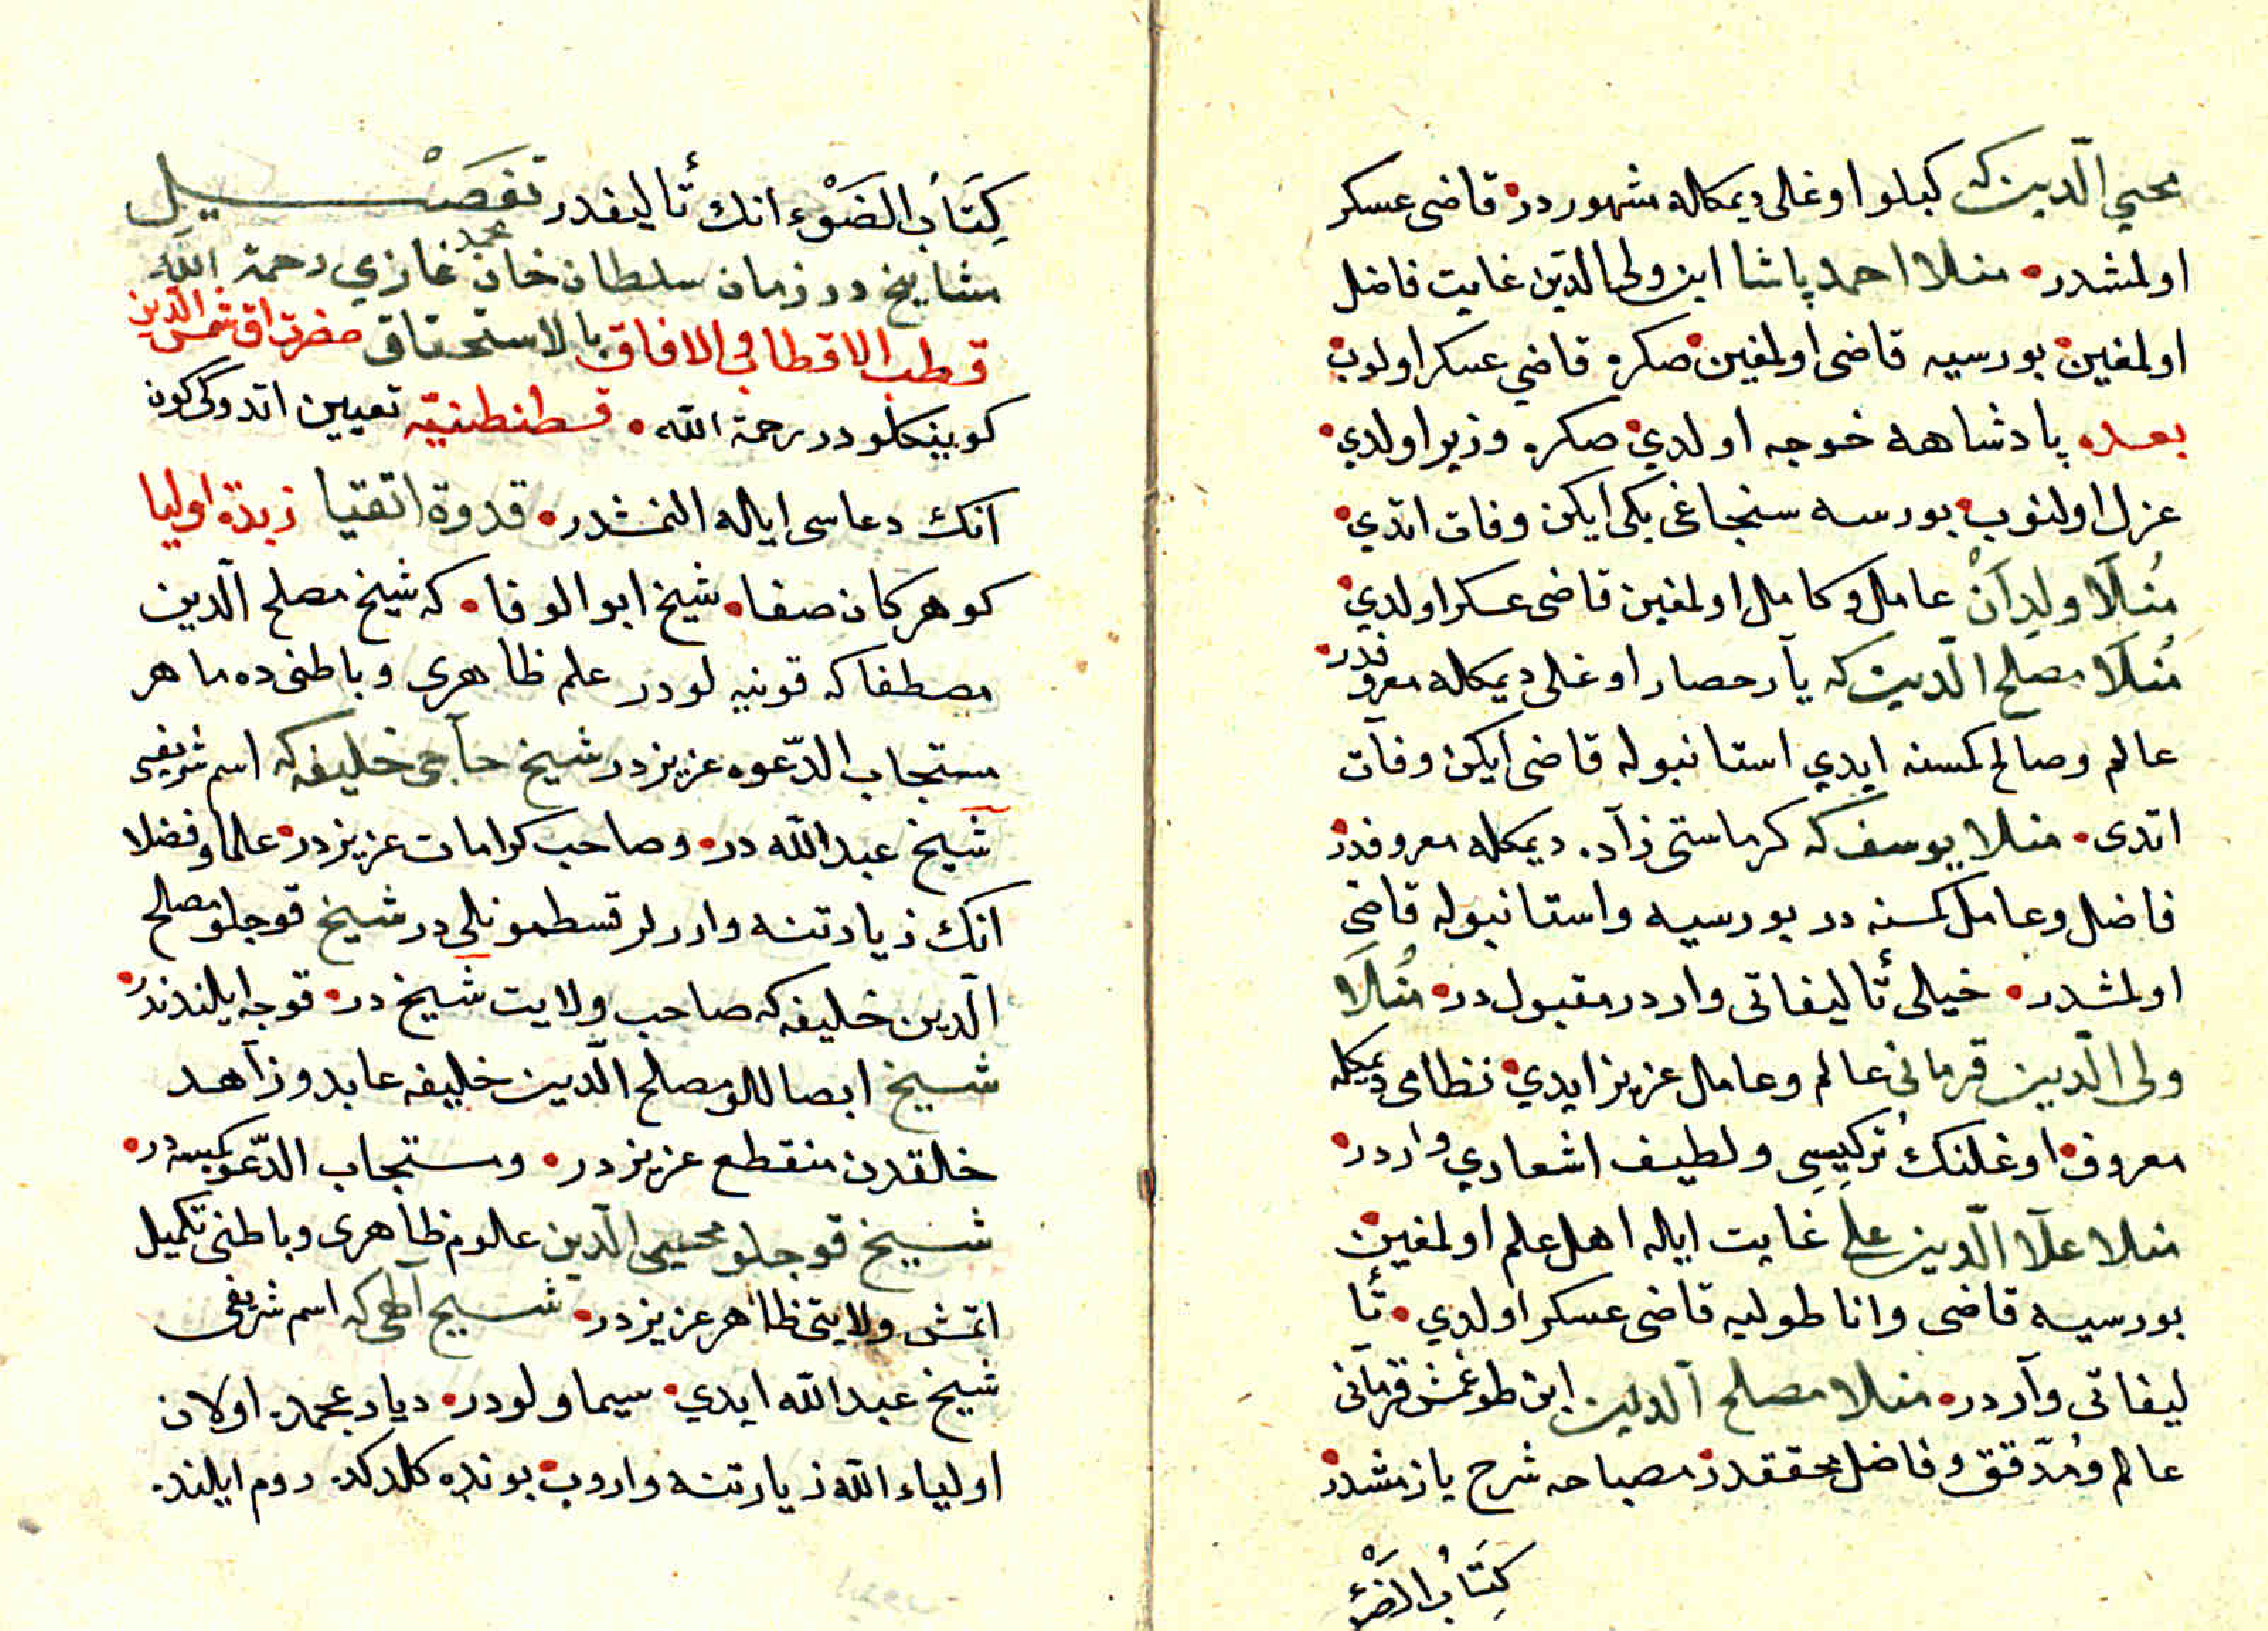 محيي الّدين كه كبلو اوغلى ديمكله مشهور در قاضى عسكر
اولمشدر منلا احمد پاشا ابن ولى الدين غايت فاضل
اولمغين بورسيه قاضى اولمغين صكره قاضي عسكر اولوب
بعده پادشاهه خوجه اولدي صكره وزير اولدي
عزل اولنوب بورسه سنجاغى بكى ايكن وفات اتدي
مُنلَا ولِدَانْ عامل و كامل اولمغين قاضى عسكر اولدي
مُنلَا مصلح الّدين كه يار حصار اوغلى ديمكله معروفدر
عالم وصالح كمسنه ايدي استانبوله قاضى ايكن وفات
اتدى منلا يوسف كه كرماستى زاده ديمكله معروفدر
فاضل وعامل كمسنه در بورسيه واستانبوله قاضى
اولمشدر خيلى تأليفاتى واردر مقبول در مُنلَا
ولى الّدين قرمانى عالم وعامل عزيز ايدي نظامى ديمكله
معروف اوغلنك تركيبسى ولطيف اشعاري واردر
منلا علا الّدين على غايت ايله اهل علم اولمغين
بورسيه قاضى واناطوليه قاضى عسكر اولدي تأ
ليفاتى واردر منلا مصلح الدين ابن طوغمش قرمانى
عالم ومُدّقق وفاضل محققدر مصباحه شرح يازمشدر
كِتَابُ الضَوْء
كِتَابُ الضَوْء انك تأليفدر تفصَيْل
مشايخ در زمان سلطان محمد خان غازي رحمة الله
قطب الاقطاب فى الافاق بالاستحقاق حضرت اق شمس الّدين
كوينكلودر رحمة الله قسطنطنيّه تعيين اتدوكى كون
انك دعاسى ايله النمشدر قدوة اتقيا زبدة اوليا
كوهر كان صفا شيخ ابو الوفا كه شيخ مصلح الّدين
مصطفا كه قونيه لودر علم ظاهرى وباطنى ده ماهر
مستجاب الدّعوه عزيزدر شيخ حاجى خليفه كه اسم شريفى
شيخ عبد الله در وصاحب كرامات عزيزدر علما وفضلا
انك زيارتنه واررلر قسطمونلى در شيخ قوجلو مصلح
الّدين خليفه كه صاحب ولايت شيخ در قوجه ايلندندر
شيخ ابصاللو مصلح الّدين خليفه عابد وزاهد
خلقدن منقطع عزيزدر ومستجاب الدّعوه كمسه در
شيخ قوجلو محيى الّدين علوم ظاهرى وباطنى تكميل
اتمش ولايتى ظاهر عزيزدر شيخ الهى كه اسم شريفى
شيخ عبد الله ايدي سيماولودر ديار عجمده اولان
اولياء الله زيارتنه واروب بونده كلدكده روم ايلنده